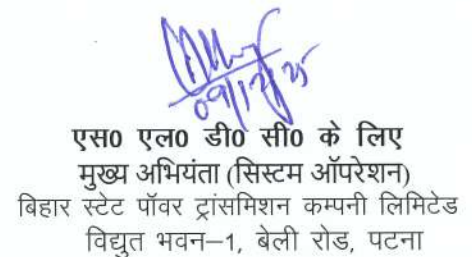 09/12/25
एस0 एल0 डी0 सी0 के लिए
मुख्य अभियंता (सिस्टम ऑपरेशन)
बिहार स्टेट पॉवर ट्रांसमिशन कम्पनी लिमिटेड
विद्युत भवन–1, बेली रोड, पटना